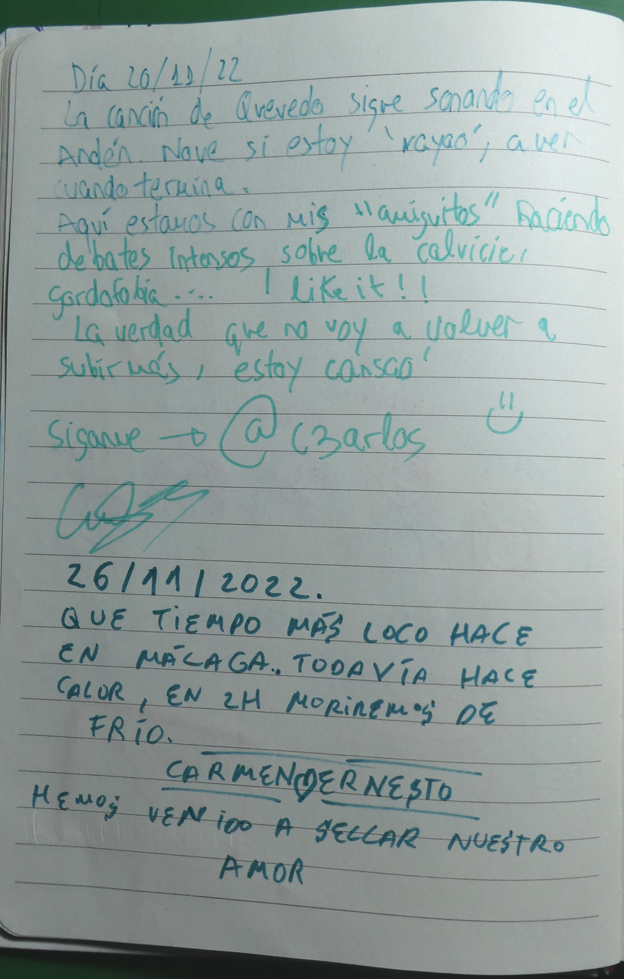 Día 20/11/22
La canción de Quevedo sigue sonando en el
Andén. Nave si estoy 'rayao', a ver
cuando termina.
Aquí estamos con mis "amiguitos" haciendo
debates intensos sobre la calvicie,
gordofobia.... I like it!!
La verdad que no voy a volver a
subir más, estoy cansao'
Siganme → @C3arlos
26/11/2022.
QUE TIEMPO MÁS LOCO HACE
EN MÁLAGA.. TODAVÍA HACE
CALOR, EN 2H MORIREMOS DE
FRÍO.
CARMEN♡ERNESTO
HEMOS VENIDO A SELLAR NUESTRO
AMOR